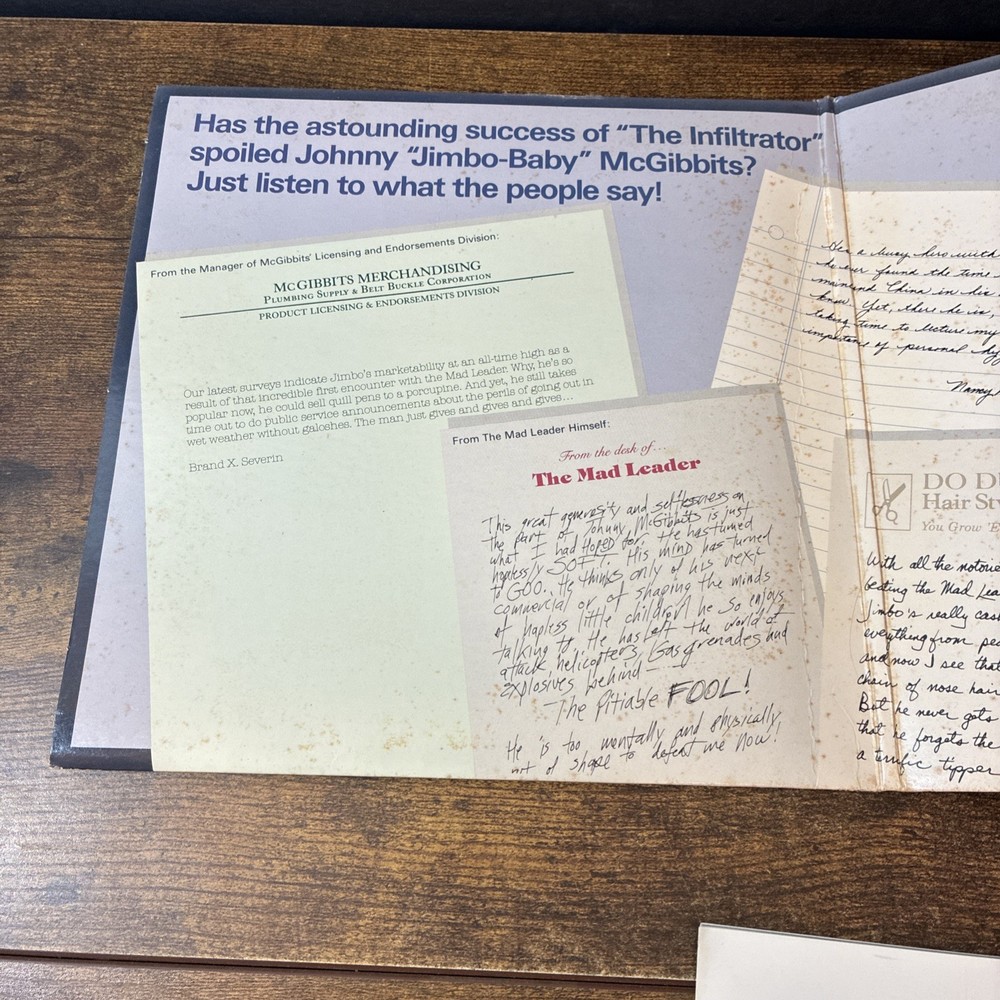 Has the astounding success of “The Infiltrator”
spoiled Johnny “Jimbo-Baby” McGibbits?
Just listen to what the people say!
From the Manager of McGibbits' Licensing and Endorsements Division:
McGIBBITS MERCHANDISING
PLUMBING SUPPLY & BELT BUCKLE CORPORATION
PRODUCT LICENSING & ENDORSEMENTS DIVISION
Our latest surveys indicate Jimbo's marketability at an all-time high as a
result of that incredible first encounter with the Mad Leader. Why, he's so
popular now, he could sell quill pens to a porcupine. And yet, he still takes
time out to do public service announcements about the perils of going out in
wet weather without galoshes. The man just gives and gives and gives...
Brand X. Severin
From The Mad Leader Himself:
From the desk of...
The Mad Leader
This great generosity and selflessness on
the part of Johnny McGibbits is just
what I had HOPED for. He has turned
hopelessly SOFT. His mind has turned
to GOO. He thinks only of his next
commercial or of shaping the minds
of hapless little children he so enjoys
talking to. He has left the world of
attack helicopters, Gas grenades and
explosives behind
The Pitiable FOOL!
He is too, mentally and physically,
out of shape to defeat me now!
a busy hero with
he ever found the time
mainland China in his
know. Yet, there he is,
taking time to lecture my
importance of personal hy
Nancy
DO D
Hair St
You Grow 'E
With all the notorie
beating the Mad Lea
Jimbo's really cas
everything from pe
and now I see that
chain of nose hair
But he never gets
that he forgets the
a terrific tipper